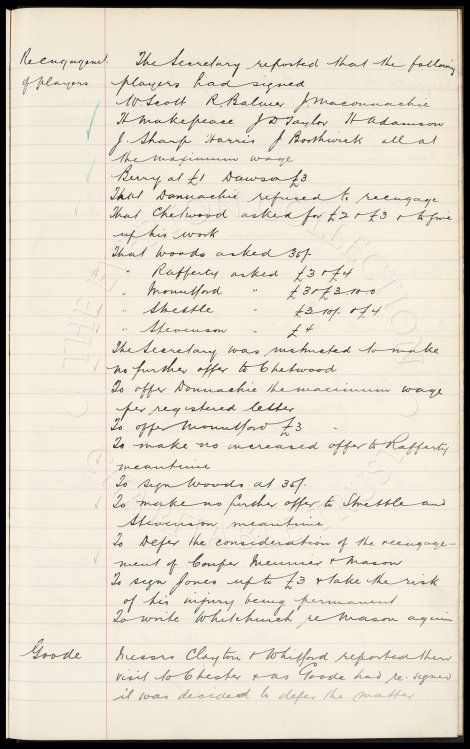 Reengagemt. The Secretary reported that the following
of players players had signed
W. Scott R Balmer J Maconnachie
H Makepeace J D Taylor H Adamson
J. Sharp Harris J Borthwick all at
the maximum wage
Berry at £1 Dawson £3
That Donnachie refused to reengage
That Chetwood asked for £2 & £3 & to give
up his work
That Woods asked 30/-
" Rafferty asked £3 & £4
" Mountford " £3 & £3.10.0
" Strettle " £3.10/- & £4
" Stevenson " £4
The Secretary was instructed to make
no further offer to Chetwood
To offer Donnachie the maximum wage
per registered letter
To offer Mountford £3
To make no increased offer to Rafferty
meantime
To sign Woods at 30/-
To make no further offer to Strettle and
Stevenson meantime
To Defer the consideration of the reengage-
ment of Couper Meunier & Mason
To sign Jones up to £3 & take the risk
of his injury being permanent
To write Whitchurch re Mason again
Goode Messrs Clayton & Whitford reported their
visit to Chester & as Goode had re-signed
it was decided to defer the matter